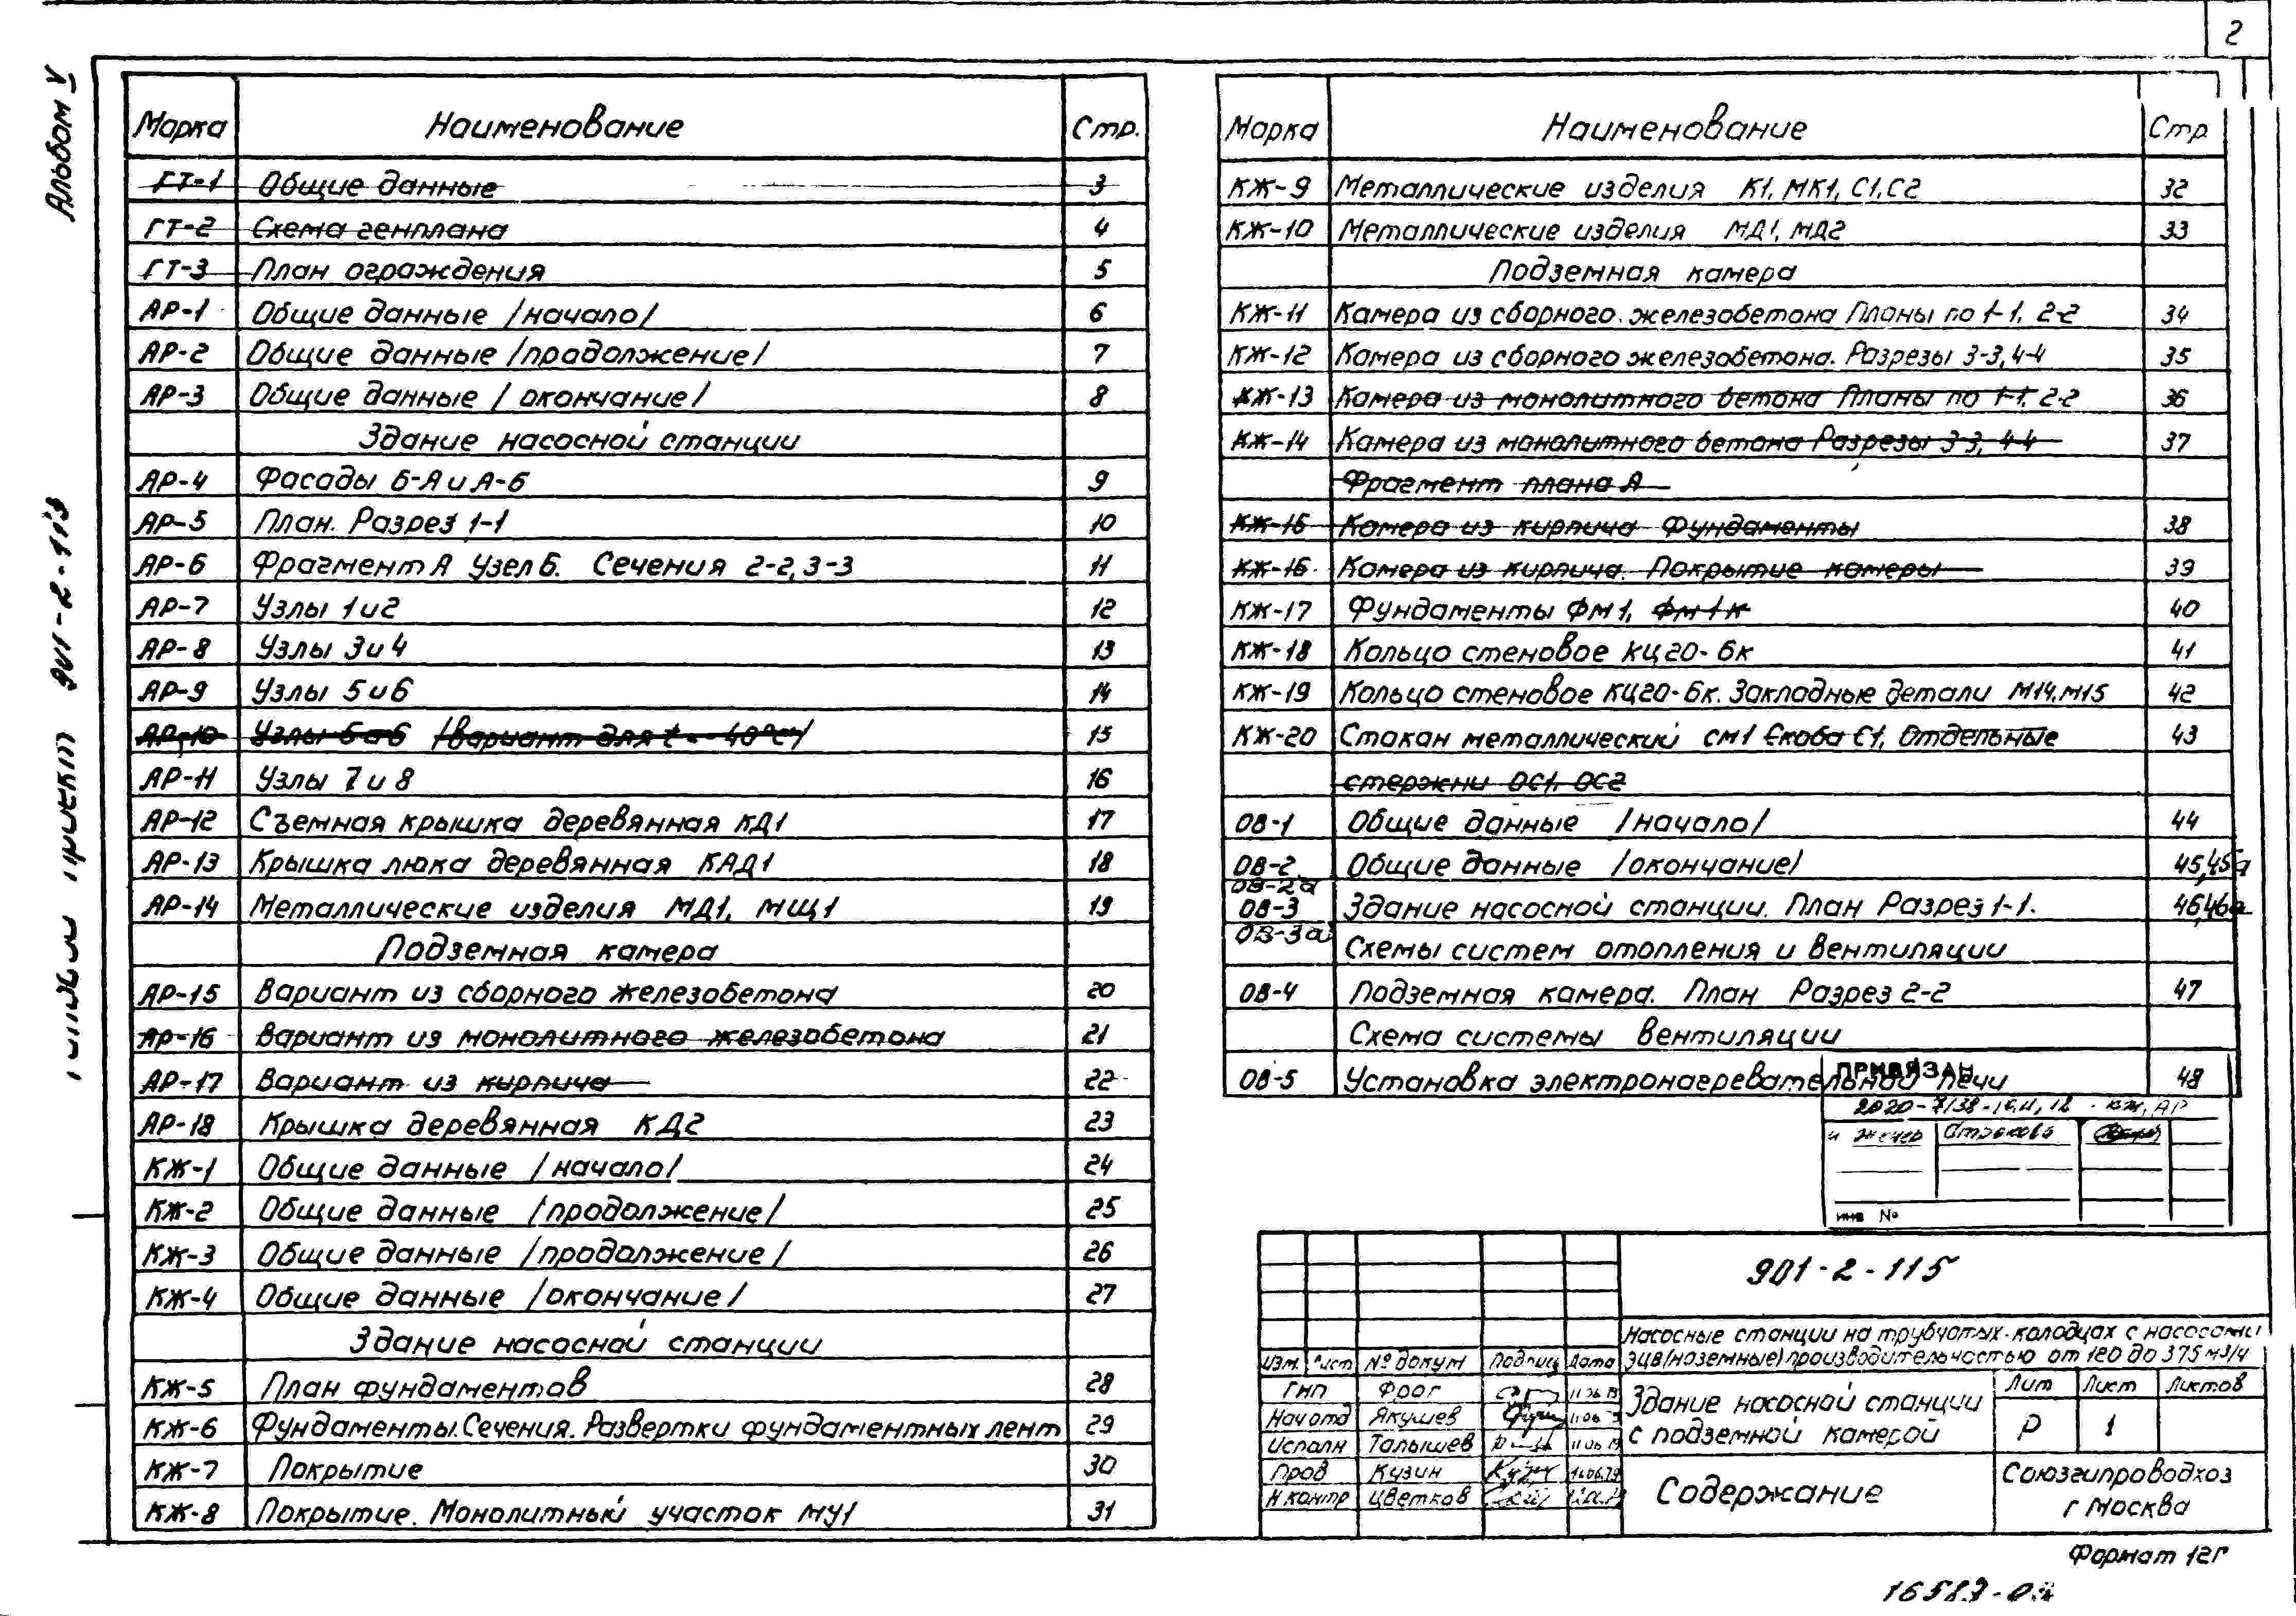 2
Альбом V
Типовой проект 901-2-115
Марка Наименование Стр.
ГТ-1 Общие данные 3
ГТ-2 Схема генплана 4
ГТ-3 План ограждения 5
АР-1 Общие данные /начало/ 6
АР-2 Общие данные /прадолжение/ 7
АР-3 Общие данные /окончание/ 8
Здание насосной станции
АР-4 Фасады Б-А и А-Б 9
АР-5 План. Разрез 1-1 10
АР-6 Фрагмент А Узел Б. Сечения 2-2, 3-3 11
АР-7 Узлы 1 и 2 12
АР-8 Узлы 3 и 4 13
АР-9 Узлы 5 и 6 14
АР-10 Узлы 5 и 6 /вариант для t=-40°С/ 15
АР-11 Узлы 7 и 8 16
АР-12 Съемная крышка деревянная КД1 17
АР-13 Крышка люка деревянная КЛД1 18
АР-14 Металлические изделия МД1, МЩ1 19
Подземная камера
АР-15 Вариант из сборного железобетона 20
АР-16 Вариант из монолитного железобетона 21
АР-17 Вариант из кирпича 22
АР-18 Крышка деревянная КД2 23
КЖ-1 Общие данные /начало/ 24
КЖ-2 Общие данные /продолжение/ 25
КЖ-3 Общие данные /продолжение/ 26
КЖ-4 Общие данные /окончание/ 27
Здание насосной станции
КЖ-5 План фундаментов 28
КЖ-6 Фундаменты. Сечения. Развертки фундаментных лент 29
КЖ-7 Покрытие 30
КЖ-8 Покрытие. Монолитный участок МУ1 31
Марка Наименование Стр
КЖ-9 Металлические изделия К1, МК1, С1, С2 32
КЖ-10 Металлические изделия МД1, МД2 33
Подземная камера
КЖ-11 Камера из сборного железобетона Планы по 1-1, 2-2 34
КЖ-12 Камера из сборного железобетона. Разрезы 3-3, 4-4 35
КЖ-13 Камера из монолитного бетона Планы по 1-1, 2-2 36
КЖ-14 Камера из монолитного бетона Разрезы 3-3, 4-4 37
Фрагмент плана А
КЖ-15 Камера из кирпича Фундаменты 38
КЖ-16 Камера из кирпича. Покрытие камеры 39
КЖ-17 Фундаменты ФМ1, ФМ1К 40
КЖ-18 Кольцо стеновое КЦ20-6к 41
КЖ-19 Кольцо стеновое КЦ20-6к. Закладные детали М14, М15 42
КЖ-20 Стакан металлический СМ1 Скоба С1, Отдельные 43
стержни ОС1, ОС2
ОВ-1 Общие данные /начало/ 44
ОВ-2 Общие данные /окончание/ 45,45а
ОВ-2а
ОВ-3 Здание насосной станции. План Разрез 1-1. 46,46а
ОВ-3а Схемы систем отопления и вентиляции
ОВ-4 Подземная камера. План Разрез 2-2 47
Схема системы вентиляции
ОВ-5 Установка электронагревательной печи 48
ПРИВЯЗАН
КЖ, АР
инв №
901-2-115
Насосные станции на трубчатых колодцах с насосами
ЭЦВ (наземные) производительностью от 120 до 375 м3/ч
Изм. Лист № докум Подпись Дата
Гип Фрог 11 06 79
Нач отд Якушев 11 06 79
Исполн Талышев 11 06 79
Пров Кузин 11.06.79
Н контр Цветков
Здание насосной станции
с подземной камерой
Лит Лист Листов
Р 1
Содержание
Союзгипроводхоз
г Москва
Формат 12Г